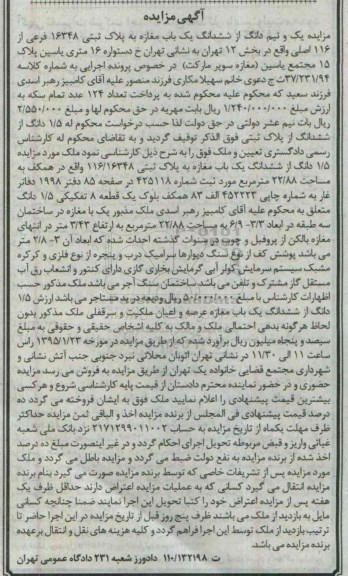 آگهی مزایده
مزایده یک و نیم دانگ از ششدانگ یک باب مغازه به پلاک ثبتی ۱۶۳۴۸ فرعی از
۱۱۶ اصلی واقع در بخش ۱۲ تهران به نشانی تهران خ دستواره ۱۶ متری یاسین پلاک
۱۵ مجتمع یاسین (مغازه سوپر مارکت) در خصوص پرونده اجرایی به شماره کلاسه
۳۷/۲۳۱/۹۴ ت ج دعوی خانم سهیلا مکاری فرزند منصور علیه آقای کامبیز رهبر اسدی
فرزند سعید که محکوم علیه محکوم شده به پرداخت تعداد ۱۲۴ عدد تمام سکه به
ارزش مبلغ ۱/۲۴۰/۰۰۰/۰۰۰ ریال بابت مهریه در حق محکوم لها و مبلغ ۲/۵۵۰/۰۰۰
ریال بات نیم عشر دولتی در حق دولت لذا حسب درخواست محکوم له ۱/۵ دانگ از
ششدانگ از پلاک ثبتی فوق الذکر توقیف گردید و به تقاضای محکوم له کارشناس
رسمی دادگستری تعیین و ملک فوق را به شرح ذیل کارشناسی نمود ملک مورد مزایده
۱/۵ دانگ از ششدانگ یک باب مغازه به پلاک ثبتی ۱۱۶/۱۶۳۴۸ واقع در همکف به
مساحت ۲۲/۸۸ مترمربع مورد ثبت شماره ۴۲۵۱۱۸ در صفحه ۸۵ دفتر ۱۹۹۸ دفاتر
غار به شماره چاپی ۴۵۲۲۲۳ الف ۸۳ همکف بلوک یک قطعه ۸ تفکیکی ۱/۵ دانگ
متعلق به محکوم علیه آقای کامبیز رهبر اسدی ملک مذبور یک باب مغازه در ساختمان
سه طبقه در ابعاد ۳/۳- ۶/۹ به مساحت ۲۲/۸۸ مترمربع به ارتفاع ۳/۴۳ متر در انتهای
مغازه بالکن از پروفیل و چوب در سنوات گذشته احداث شده که ابعاد آن ۳- ۲/۸ متر
می باشد پوشش کف از نوع سنگ دیوارها سرامیک درب و پنجره از نوع فلزی و کرکره
مشبک سیستم سرمایش کولر آبی گرمایش بخاری گازی دارای کنتور و انشعاب رق آب
مستقل گاز مشترک و تلفن می باشد ساختمان سنگ آجر می باشد ملک مذکور حسب
اظهارات کارشناس با مبلغ ۵۰/۰۰۰/۰۰۰ ریال ودیعه در ید مستاجر می باشد ارزش ۱/۵
دانگ از ششدانگ یک باب مغازه عرصه و اعیان ملکیت و سرقفلی ملک مذکور بدون
لحاظ هرگونه بدهی احتمالی ملک و مالک به کلیه اشخاص حقیقی و حقوقی به مبلغ
سیصد و پنجاه میلیون ریال برآورد شده که از طریق مزایده در مورخه ۱۳۹۵/۱/۲۳ راس
ساعت ۱۱ الی ۱۱/۳۰ در نشانی تهران اتوبان محلاتی نبرد جنوبی جنب آتش نشانی و
شهرداری مجتمع قضایی خانواده یک تهران از طریق مزایده به فروش می رسد مزایده
حضوری و در حضور نماینده محترم دادستان از قیمت پایه کارشناسی شروع و هرکسی
بیشترین قیمت پیشنهادی را اعلام نمایید ملک فوق به ایشان فروخته می گردد ده
درصد قیمت پیشنهادی فی المجلس از برنده مزایده اخذ و الباقی ثمن مزایده حداکثر
ظرف مهلت یکماه از تاریخ مزایده به حساب ۲۱۷۱۲۹۹۰۱۱۰۰۲ نزد بانک ملی شعبه
غیاثی واریز و قبض مربوطه تحویل اجرای احکام گردد و در غیر اینصورت مبلغ ده درصد
اخذ شده از برنده مزایده به نفع دولت ضبط می گردد و مزایده باطل می گردد و ملک
مورد مزایده پس از تشریفات خاصی که توسط برنده مزایده صورت می گیرد بنام برنده
مزایده انتقال می گیرد کسانی که به عملیات مزایده اعتراض دارند حداقل ظرف یک
هفته پس از مزایده اعتراض خود را کتبا تحویل این اجرا نمایند ضمنا چنانچه کسانی
مایل به بازدید از ملک می باشند ظرف پنج روز قبل از تاریخ مزایده در این اجرا حاضر تا
ترتیب بازدید از ملک توسط این اجرا فراهم گردد و کلیه هزینه های نقل و انتقال برعهده
برنده مزایده می باشد.
ت ۱۱۰/۱۳۲۱۹۸ دادورز شعبه ۲۳۱ دادگاه عمومی تهران